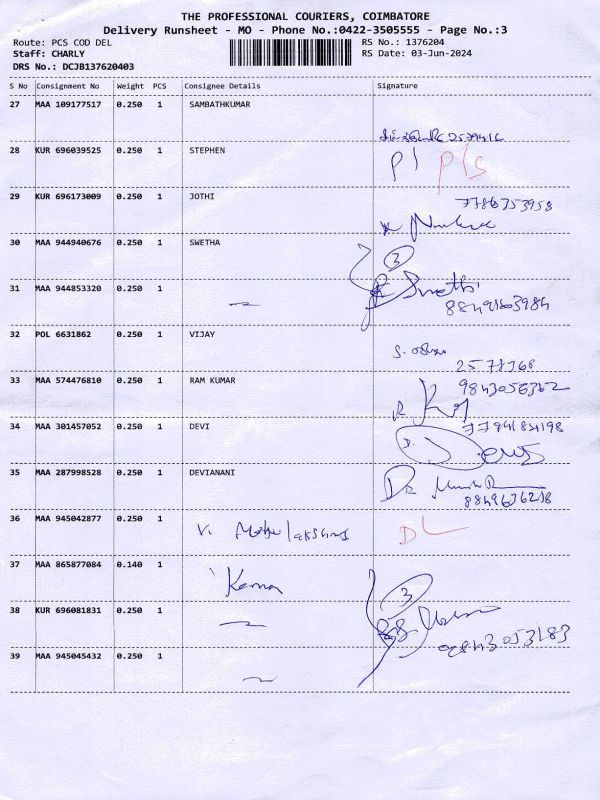 THE PROFESSIONAL COURIERS, COIMBATORE
Delivery Runsheet - MO - Phone No.:0422-3505555 - Page No.:3
Route: PCS COD DEL
RS No.: 1376204
Staff: CHARLY
RS Date: 03-Jun-2024
DRS No.: DCJB137620403
S No Consignment No Weight PCS Consignee Details Signature
27 MAA 109177517 0.250 1 SAMBATHKUMAR
28 KUR 696039525 0.250 1 STEPHEN
29 KUR 696173009 0.250 1 JOTHI
7786353958
30 MAA 944940676 0.250 1 SWETHA
3
31 MAA 944853320 0.250 1
Swethi
32 POL 6631862 0.250 1 VIJAY
2578768
33 MAA 574476810 0.250 1 RAM KUMAR
9843056362
34 MAA 301457052 0.250 1 DEVI
35 MAA 287998528 0.250 1 DEVIANANI
36 MAA 945042877 0.250 1
DL
37 MAA 865877084 0.140 1
3
38 KUR 696081831 0.250 1
9843053183
39 MAA 945045432 0.250 1